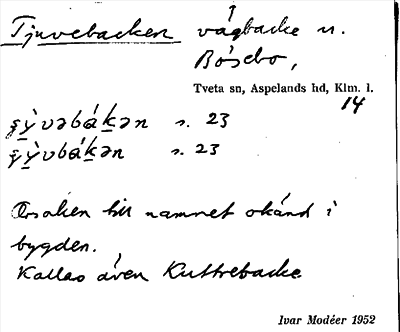 Tjuvebacken vägbacke n.
Bösebo,
Tveta sn, Aspelands hd, Klm. l.
14
s. 23
s. 23
Orsaken till namnet okänd i
bygden.
Kallas även Kuttrebacke
Ivar Modéer 1952